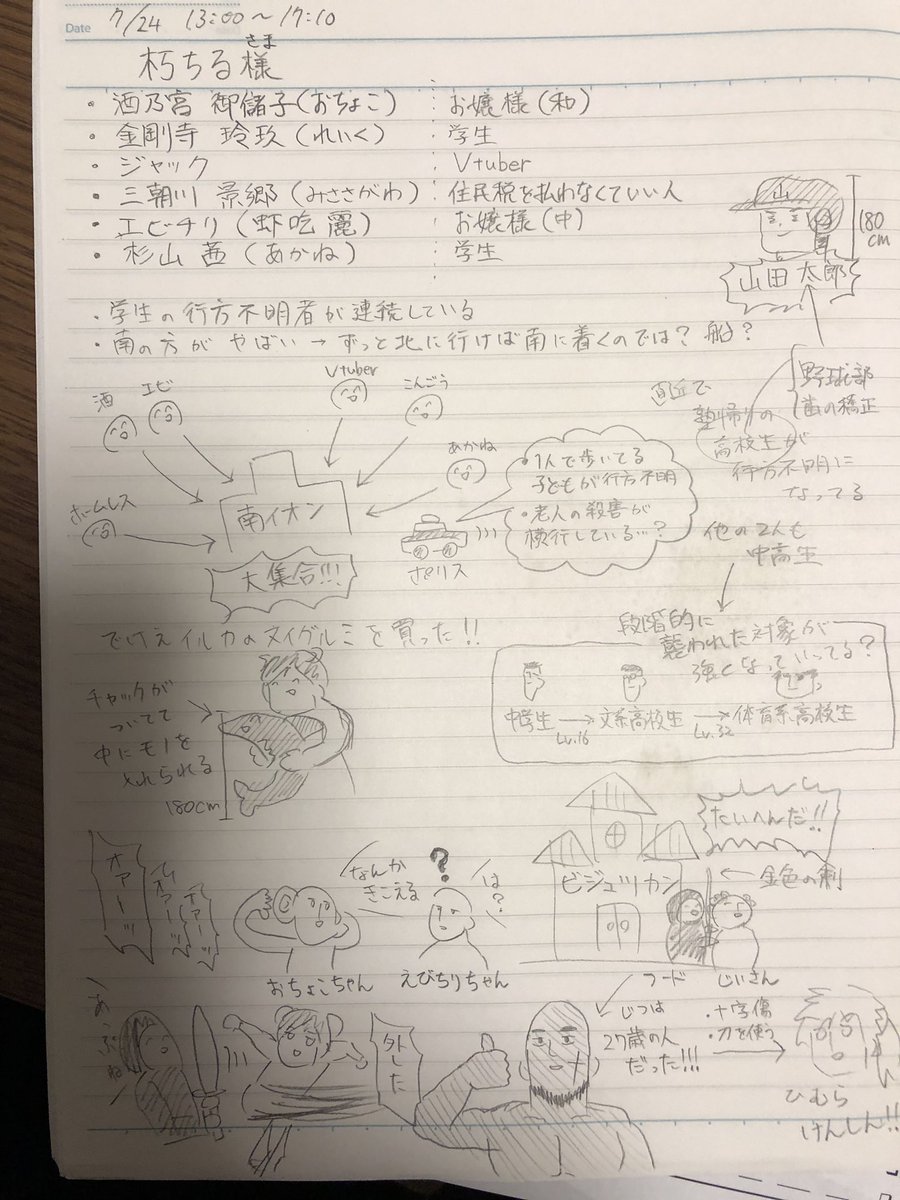 Date 7/24 13:00～17:10
朽ちる様
さま
・酒乃宮 御儲子(おちょこ) : お嬢様(和)
・金剛寺 玲玖(れいく) : 学生
・ジャック : Vtuber
・三朝川 景郷(みささがわ) : 住民税を払わなくていい人
・エビチリ(虾吃 麗) : お嬢様(中)
・杉山 茜(あかね) : 学生
山
180cm
山田太郎
・学生の行方不明者が連続している
・南の方がやばい→ずっと北に行けば南に着くのでは? 船?
野球部
歯の矯正
直近で
塾帰りの
高校生が
行方不明に
なってる
他の2人も
中高生
酒
エビ
Vtuber
こんごう
あかね
ホームレス
南イオン
大集合!!!
ポリス
・1人で歩いてる
子どもが行方不明
・老人の殺害が
横行している…?
段階的に
襲われた対象が
強くなっていってる?
中学生→文系高校生→体育系高校生
Lv.16
Lv.32
でけえイルカのヌイグルミを買った!!
チャックが
ついてて
中にモノを
入れられる
180cm
オァーッ
ムオァーッ
デァーッ
なんか
きこえる
?
は?
おちょこちゃん
えびちりちゃん
ビジュツカン
たいへんだ!!
金色の剣
フード
じいさん
じつは
27歳の人
だった!!!
・十字傷
・刀を使う
ひむら
けんしん!!
あっぶね
外した